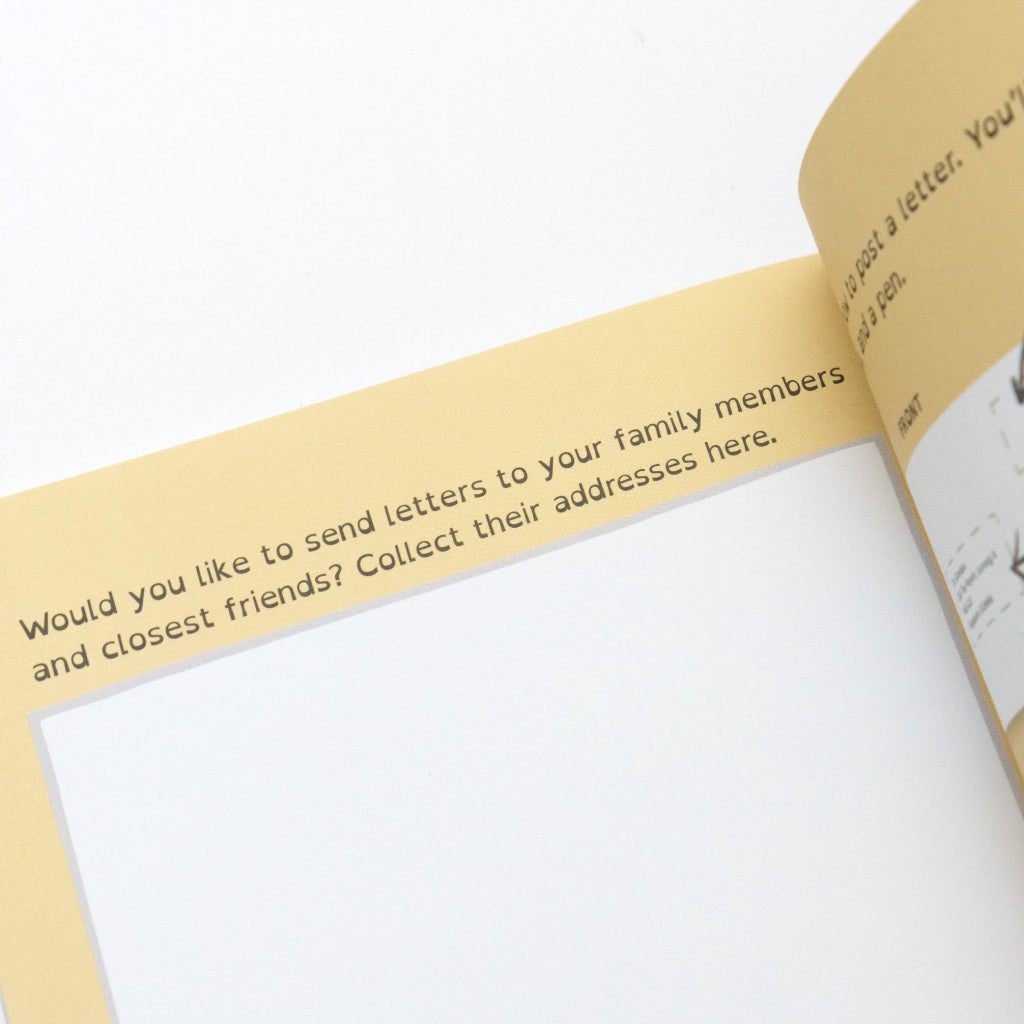 Would you like to send letters to your family members
and closest friends? Collect their addresses here.
to post a letter. You'll
and a pen.
FRONT